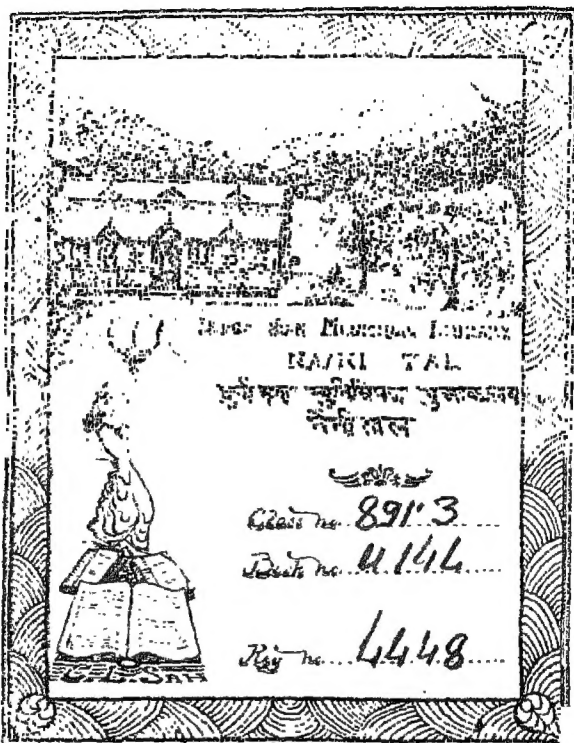 Durga Sah Municipal Library
NAINI TAL
दुर्गासाह म्युनिसिपल पुस्तकालय
नैनीताल
Class no. 891.3
Book no.
Reg no. 4448
C. L. SAH